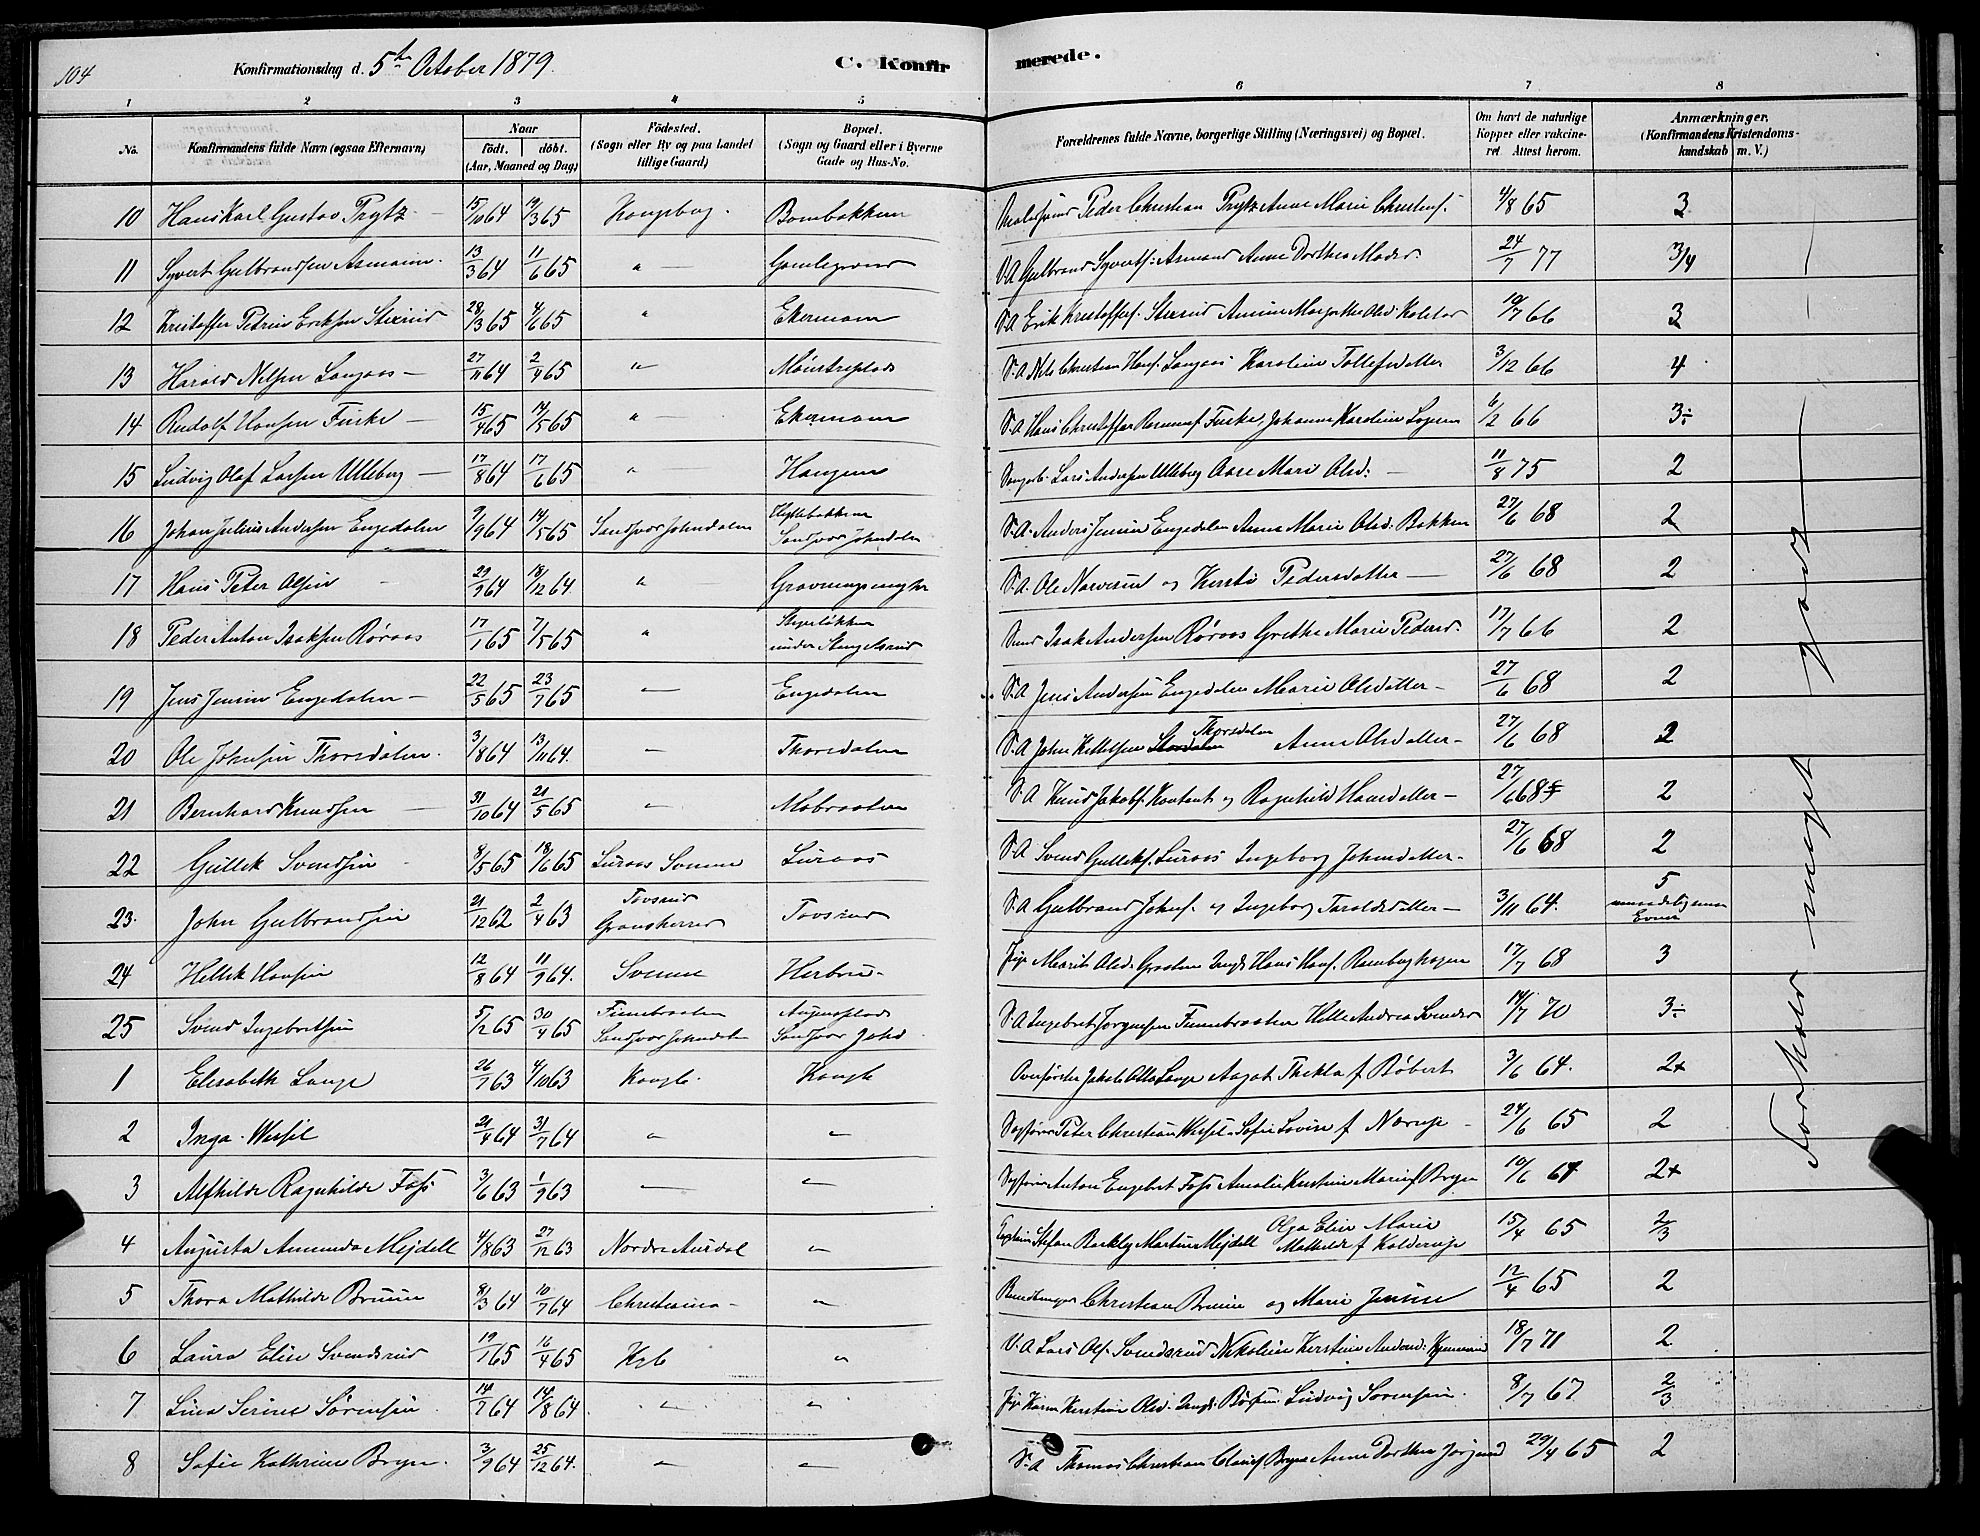 104
Konfirmationsdag d. 5te October 1879.
C. Konfirmerede.
1 2 3 4 5 6 7 8
No.
Konfirmandens fulde Navn (ogsaa Efternavn)
Naar
födt. döbt.
(Aar, Maaned og Dag)
Födested.
(Sogn eller By og paa Landet tillige Gaard)
Bopæl.
(Sogn og Gaard eller i Byerne Gade og Hus-No.
Forældrenes fulde Navne, borgerlige Stilling (Næringsvei) og Bopæl.
Om havt de naturlige Kopper eller vakcineret. Attest herom.
Anmærkninger.
(Konfirmandens Kristendomskundskab m. V.)
10 Hans Karl Gustav Prytz 15/10 64 19/3 65 Kongsberg. Bombakken Peder Christian Prytz Anne Marie Christens. 4/8 65 3
11 Syvert Gulbrandsen Asmann 13/3 64 11/6 65 " Gamlegrend S.A Gulbrand Syverts. Asmand Anne Dorthea Madsd. 24/7 77 3/4
12 Kristoffer Petrus Eriksen Stixrud 28/3 65 4/6 65 " Ekermoen S.A Erik Kristoffers. Stixrud Margrethe Olsd Kolstad 19/7 66 3
13 Harald Nilsen Langaas 27/11 64 2/4 65 " S.A Nils Christian Hans. Langaas Karoline Tollefsdatter 3/12 66 4
14 Rudolf Hansen Fiske 15/4 65 14/5 65 " Ekermoen S.A Hans Christoffer Fiske, Johanne Karoline 6/2 66 3÷
15 Ludvig Olaf Larsen Ulleberg 17/8 64 17/6 65 " Haugen Lars Andersen Ulleberg Aase Marie Olsd. 11/8 75 2
16 Johan Julius Andersen Engedalen 9/9 64 14/5 65 Sandsvær Johndalen Hyttebakken Sandsvær Johndalen S.A. Anders Jensen Engedalen Anna Marie Olsd. Bakken 27/6 68 2
17 Hans Peter Olsen 29/9 64 18/12 64 " S.A. Ole Narverud og Kirsti Pedersdatter 27/6 68 2
18 Peder Anton Isaksen Røraas 17/1 65 7/5 65 " under Stengelsrud Isak Andersen Røraas Grethe Marie Pedersd. 17/7 66 2
19 Jens Jensen Engedalen 22/5 65 23/7 65 Engedalen S.A Jens Andersen Engedalen Marie Olsdatter 27/6 68 2
20 Ole Johnsen Thorsdalen. 3/8 64 13/11 64. Thorsdalen S.A John Kittelsen Thorsdalen Anne Olsdatter 27/6 68 2
21 Bernhard Knudsen 31/10 64 21/5 65 Mobraaten S.A Knud Jakobs. og Ragnhild Hansdatter 27/6 68 2
22 Gullik Svendsen 8/5 65 18/6 65 Luraas Svene Luraas S.A Svend Gulliks. Luraas Ingeborg Johnsdatter 27/6 68 2
23. John Gulbrandsen 21/12 62 2/4 63 Tovsrud Gransherred Tovsrud S.A Gulbrand Johns. og Ingeborg Taraldsdatter 3/11 64. 5 Evner
24 Hellik Hansen 12/8 64 11/9 64. Svene Herbru Pige Marit Olsd. Graaten Ungk Hans Hans. Ramberghagen 17/7 68 3
25 Svend Ingebretsen 5/2 65 30/4 65 Finnebraaten Sandsvær Johndalen Sandsvær Johd S.A Ingebret Jørgensen Finnebraaten Helle Andrea Svendsd 14/7 70 3÷
1 Elisabeth Lange 26/7 63 4/10 63 Kongb. Kongb Overførster Jakob Otto Lange Aagot Thekla f Bøbert 3/6 64. 2+
2 Inga Wessel 21/4 64 31/7 64 Sagfører Peter Christian Wessel Sofie Lovise f Nørup 24/6 65 2
3 Alfhilde Ragnhilde Foss 3/6 63 1/9 63 Sagfører Anton Engebret Foss Amalie Kirstine Marie f Bryn 10/6 64 2+
4 Augusta Amunda Mejdell 4/8 63 27/12 63 Nordre Aurdal Captein Stefan Barkley Martius Mejdell Olga Elise Marie Mathilde f Kolderup 15/4 65 2/3
5 Thora Mathilde Bruun 8/3 64 10/7 64 Christiania Christian Bruun og Marie Jensen 12/4 65 2
6 Laura Elise Svendsrud 19/1 65 16/4 65 Kgb S.A Lars Ols. Svendsrud Nikoline Kirstine Andersd. 18/7 71 2
7 Lina Serine Sørensen 14/7 64 14/8 64 Pige Karen Kirstine Olsd. Ungk. Ludvig Sørensen. 8/7 67 2/3
8 Sofie Kathrine Bryn 3/9 64 25/12 64. S.A Thomas Christian Bryn Anne Dorthea 29/4 65 2
Forhold meget godt